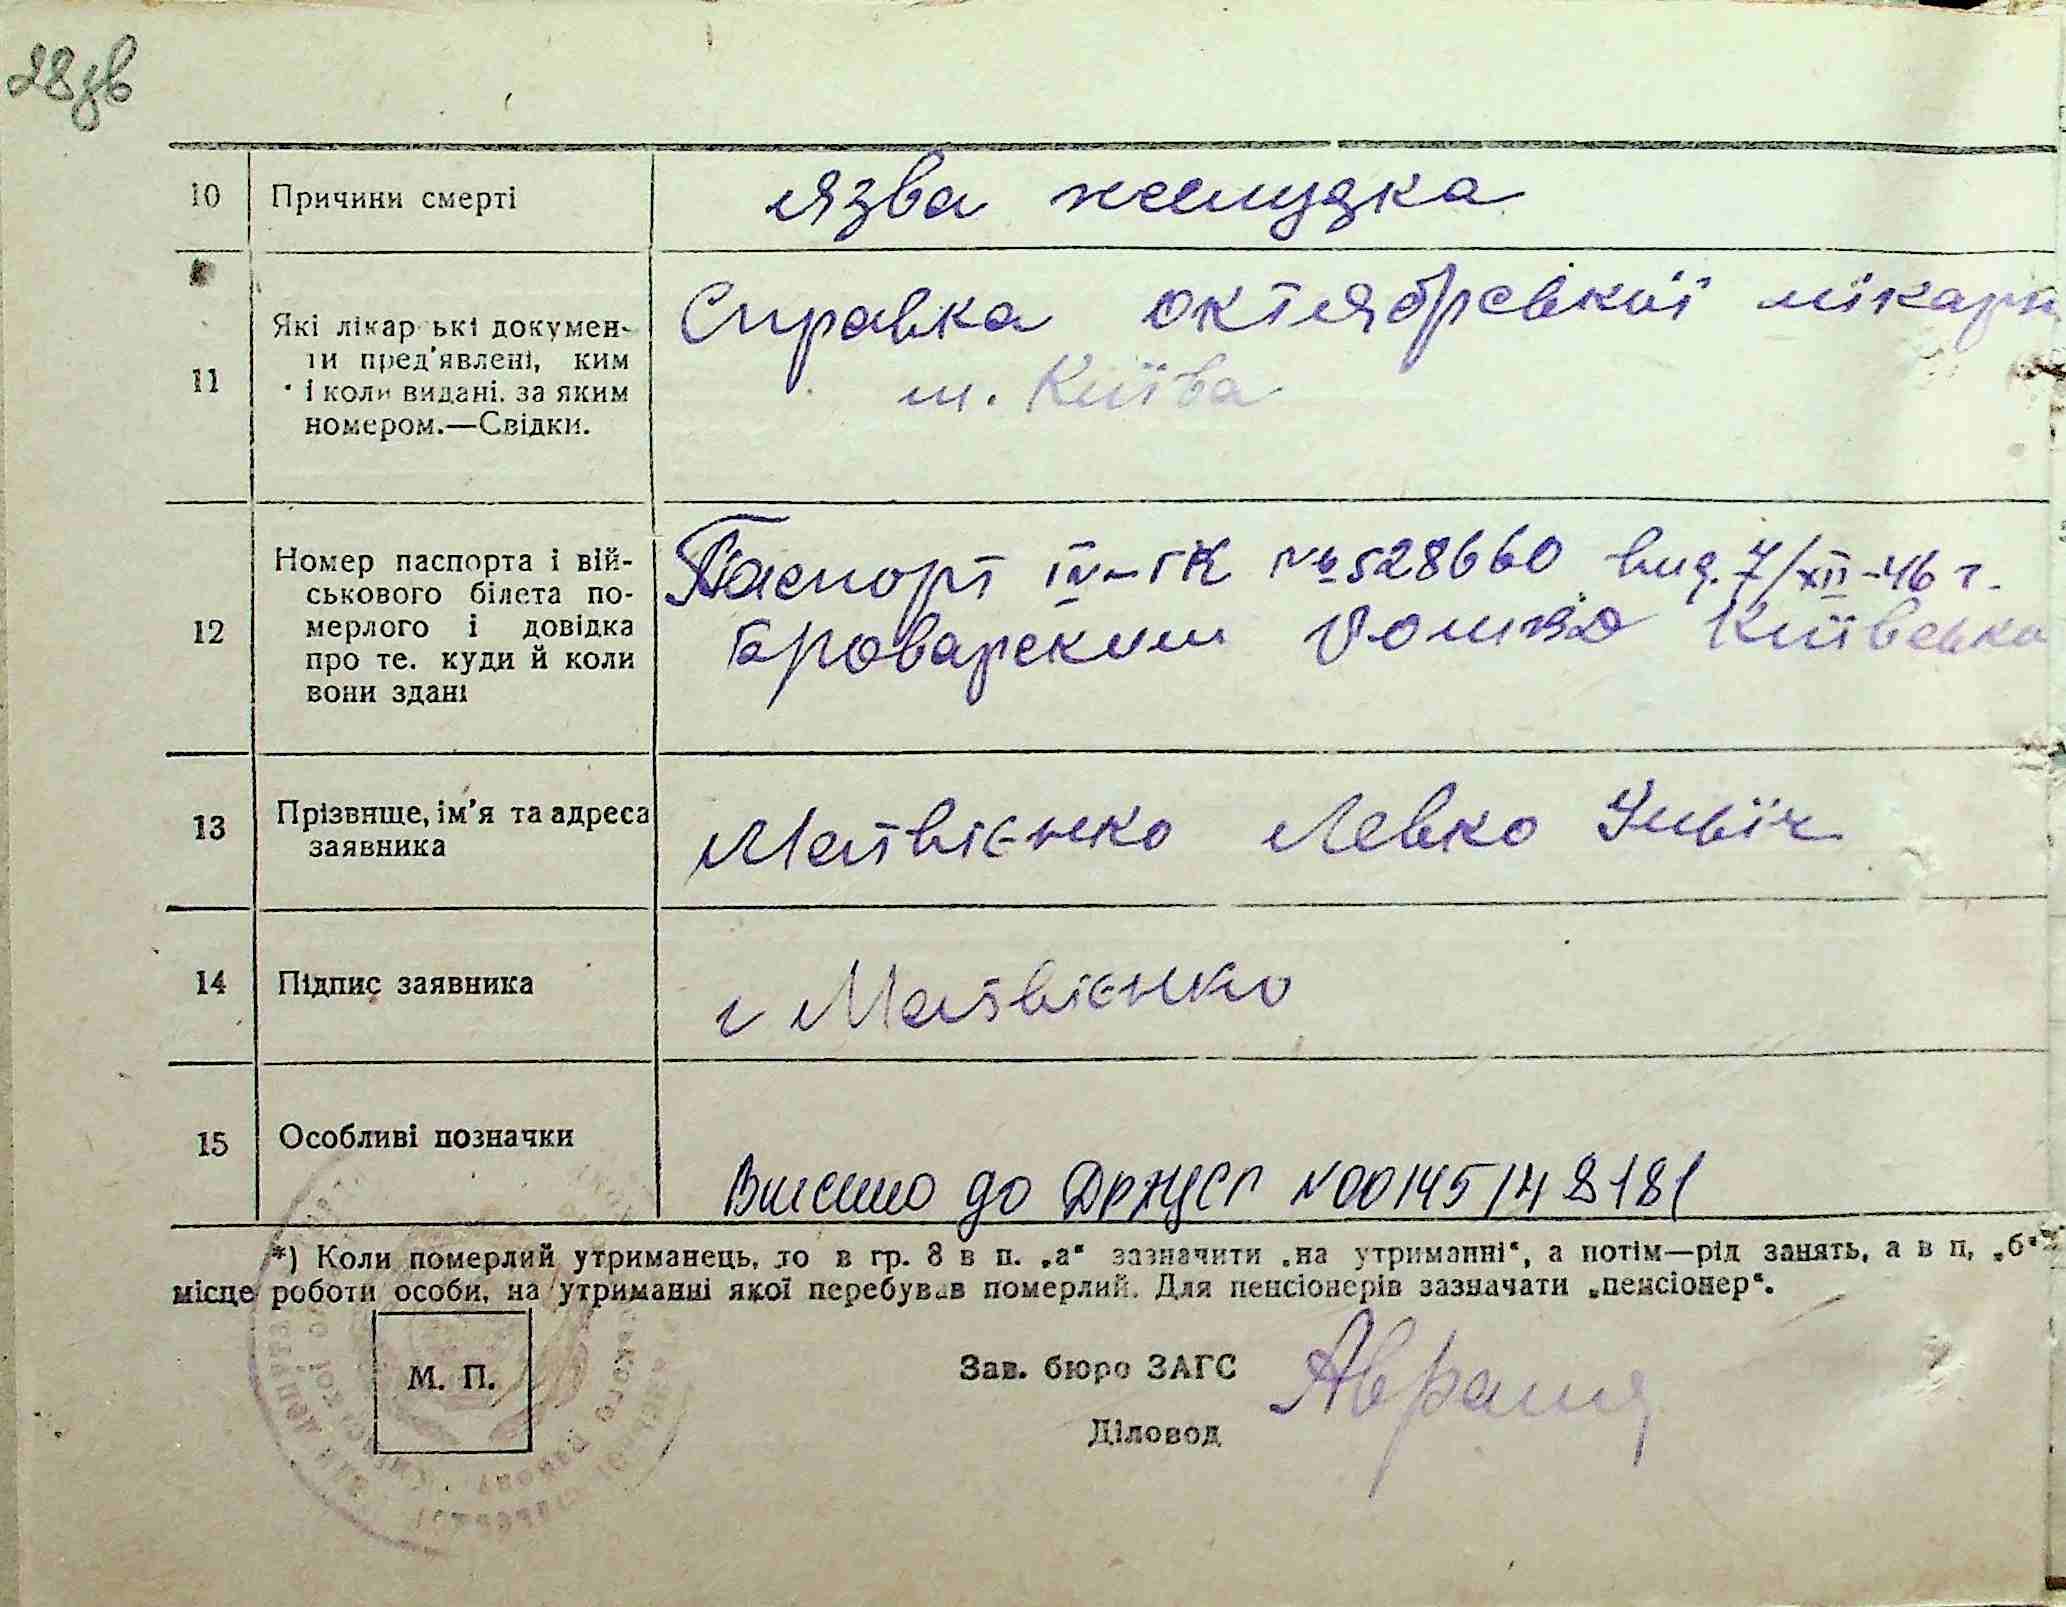 28зв
10 Причини смерті язва желудка
11 Які лікар ькі докумен-
ти пред'явлені, ким
і коли видані, за яким
номером.—Свідки.
Справка октябрської лікарн
м. Київа
12 Номер паспорта і вій-
ськового білета по-
мерлого і довідка
про те. куди й коли
вони здані
Паспорт IV-ГК № 528660 вид. 7/XII-46 г.
Броварским Київська
13 Прізвище, ім'я та адреса
заявника
Матвієнко Левко
14 Підпис заявника Матвієнко
15 Особливі позначки
Внесено до ДРАЦСГ N00145142181
*) Коли померлий утриманець, то в гр. 8 в п. „а“ зазначити „на утриманні“, а потім—рід занять, а в п, „б“
місце роботи особи, на утриманні якої перебував померлий. Для пенсіонерів зазначати „пенсіонер“.
М. П.
Зав. бюро ЗАГС
Діловод